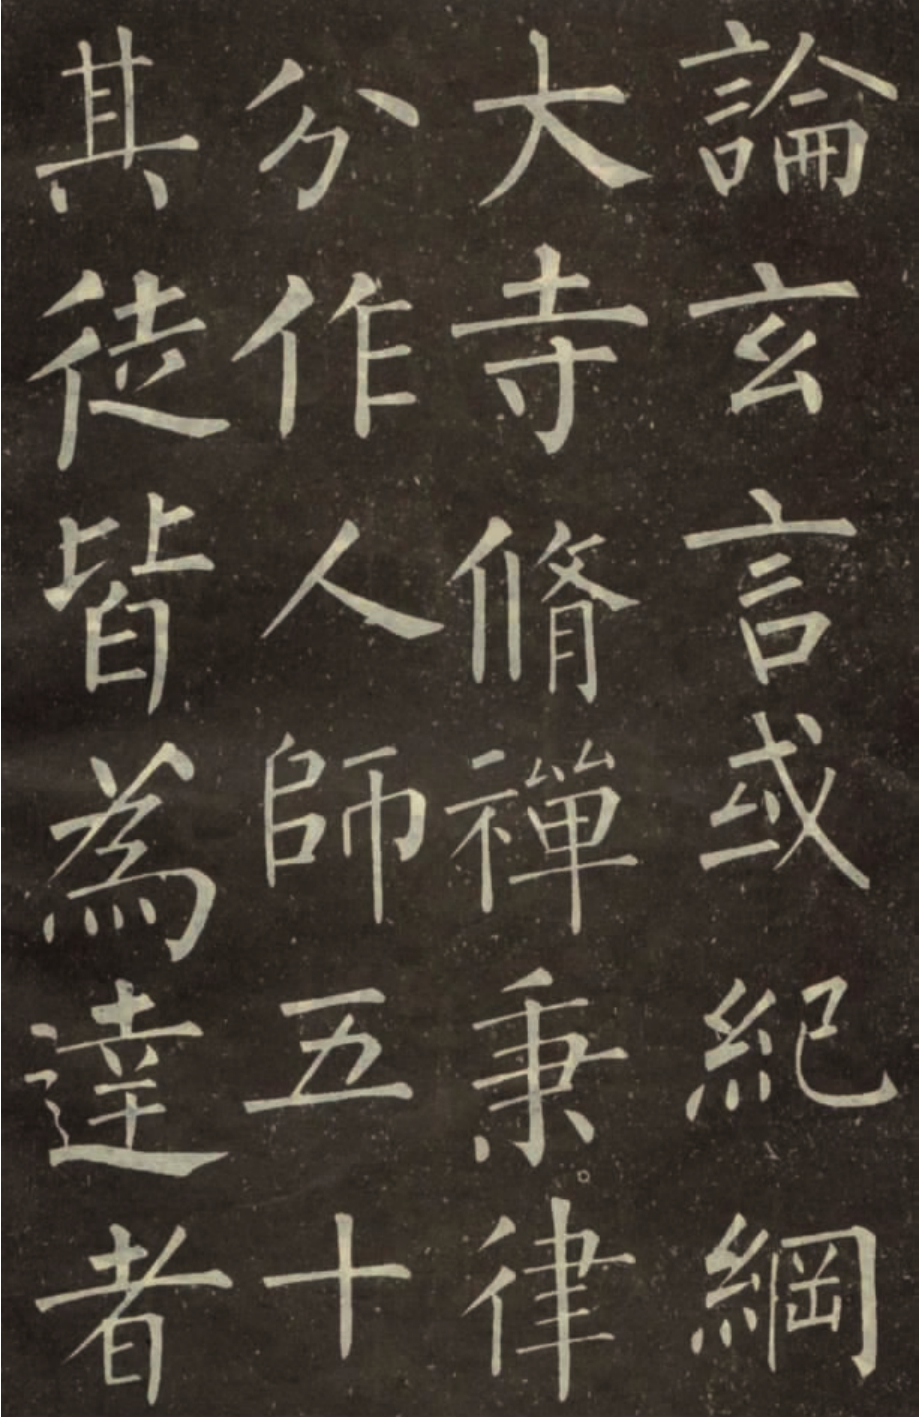 論玄言或紀綱
大寺脩禪秉律
分作人師五十
其徒皆為達者